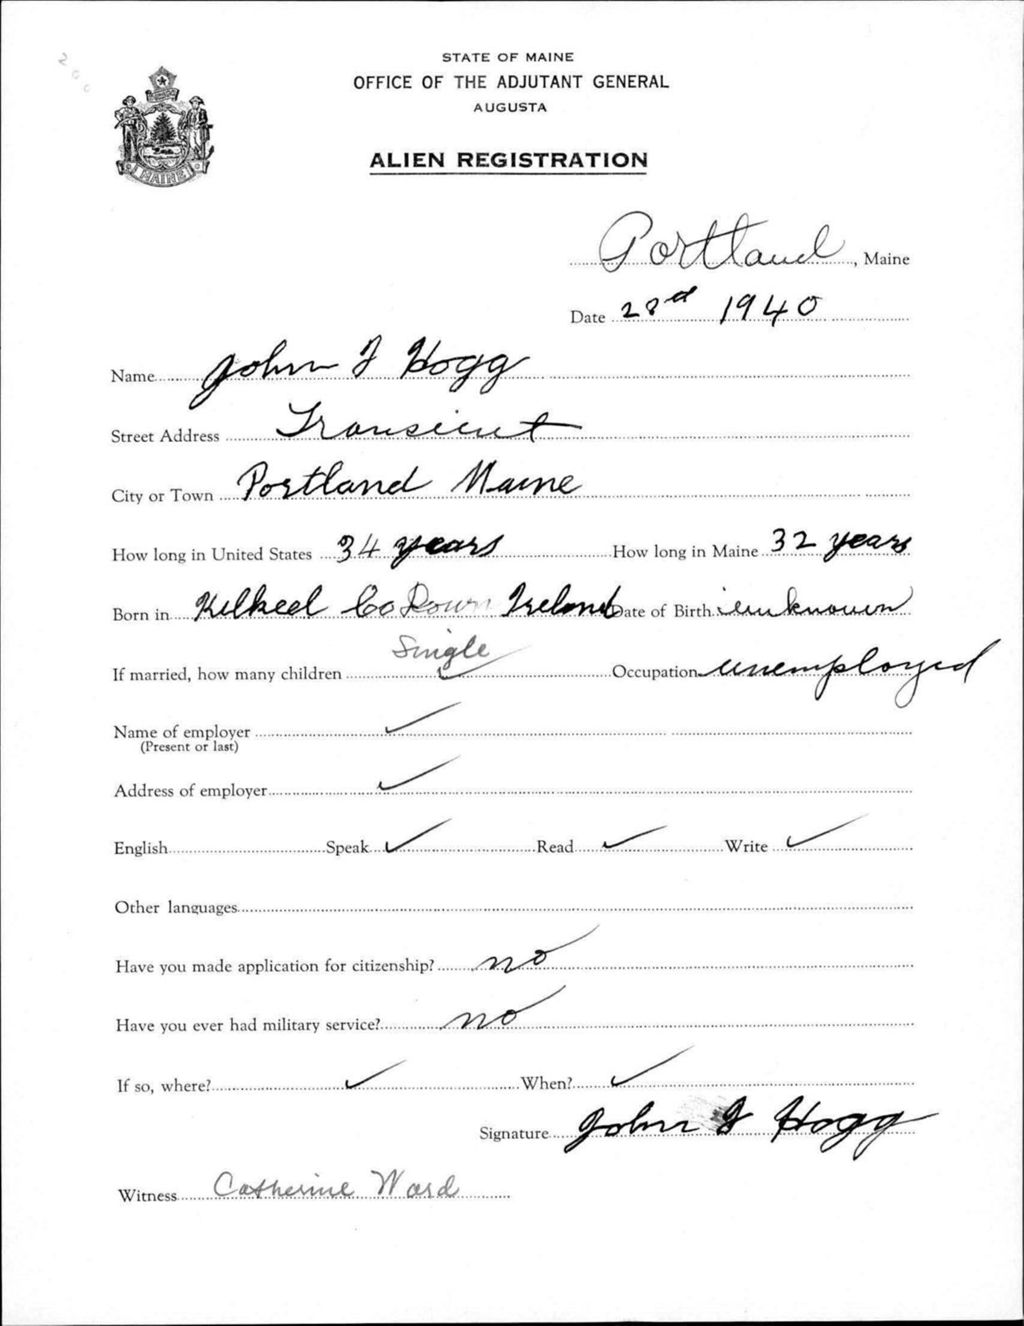 STATE OF MAINE
OFFICE OF THE ADJUTANT GENERAL
AUGUSTA
ALIEN REGISTRATION
Portland, Maine
Date 28d 1940
Name John J Hogg
Street Address Transient
City or Town Portland Maine
How long in United States 34 years How long in Maine 32 years
Born in Kilkeel Co Down Ireland Date of Birth unknown
Single
If married, how many children Occupation unemployed
Name of employer
(Present or last)
Address of employer
English Speak ✓ Read ✓ Write ✓
Other languages
Have you made application for citizenship? no
Have you ever had military service? no
If so, where? When?
Signature John J Hogg
Witness Catherine Ward